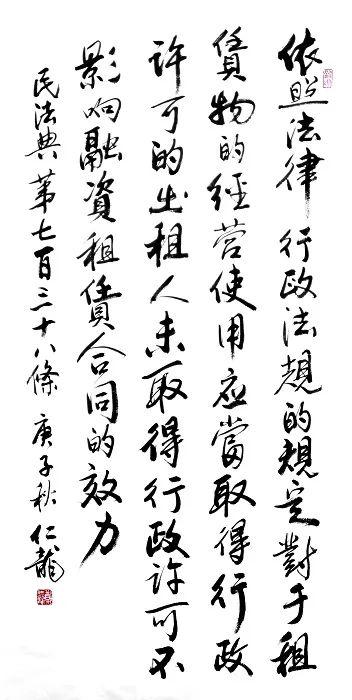 依照法律行政法規的規定對于租
賃物的經营使用应當取得行政
许可的出租人未取得行政许可不
影响融資租賃合同的效力
民法典第七百三十八條 庚子秋 仁龍